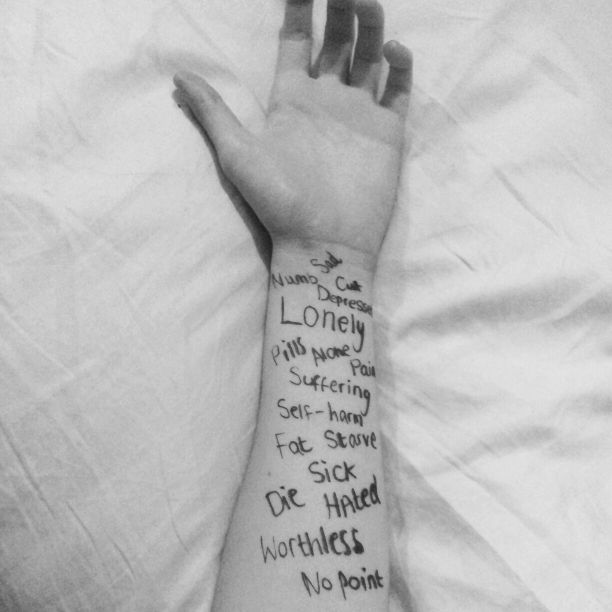 Sad
Numb Cut
Depressed
Lonely
Pills Alone Pain
Suffering
Self-harm
Fat Starve
Sick
Die HAted
Worthless
No point